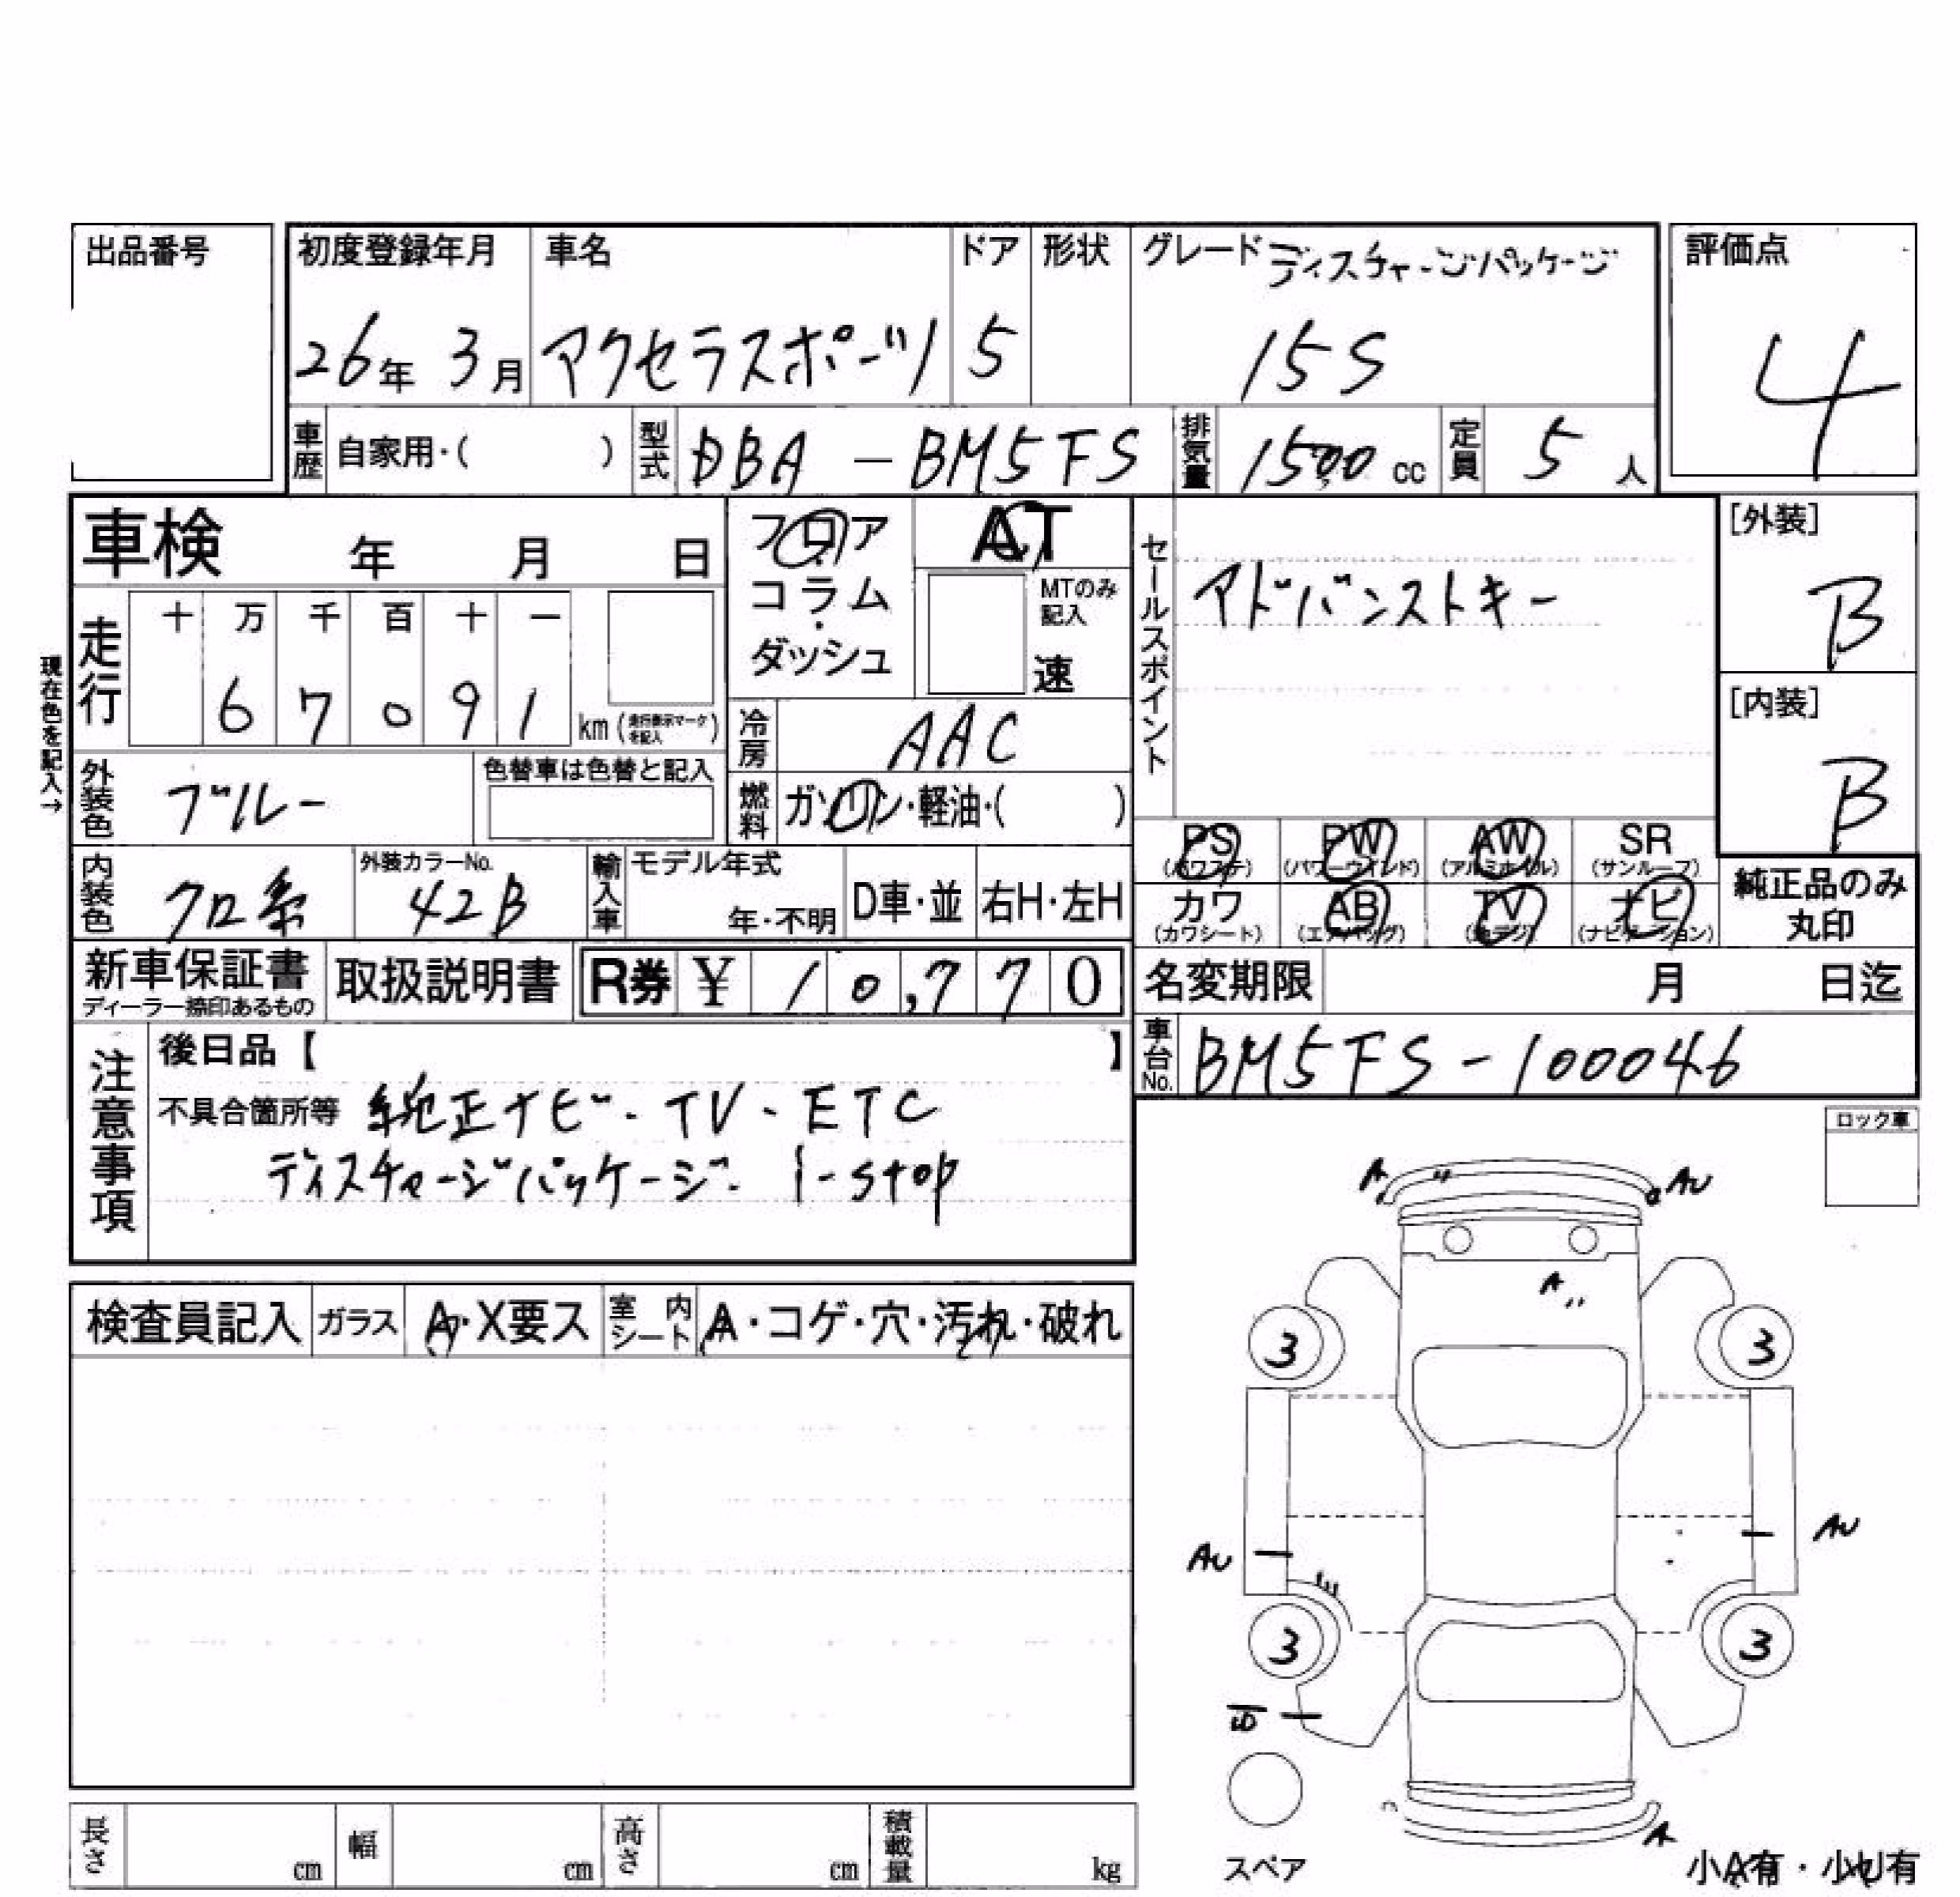 出品番号
初度登録年月 車名 ドア 形状 グレード ディスチャージパッケージ 評価点
26年 3月 アクセラスポーツ 5 15S 4
車歴 自家用・( ) 型式 DBA - BM5FS 排気量 1500 cc 定員 5 人
車検 年 月 日 フロア AT セールスポイント [外装]
コラム・ MTのみ記入 アドバンストキー B
走行 十 万 千 百 十 一 ダッシュ 速
6 7 0 9 1 km (走行表示マークを記入) 冷房 AAC [内装]
現在色を記入→
外装色 ブルー 色替車は色替と記入 燃料 ガソリン・軽油・( ) B
PS PW AW SR
(パワステ) (パワーウインド) (アルミホイル) (サンルーフ)
内装色 クロ系 外装カラーNo. 42B 輸入車 モデル年式 年・不明 D車・並 右H・左H カワ AB TV ナビ 純正品のみ
(カワシート) (エアバッグ) (地デジ) (ナビゲーション) 丸印
新車保証書 取扱説明書 R券 ¥ 10,770 名変期限 月 日迄
ディーラー捺印あるもの
車台No. BM5FS-100046
注意事項 後日品【 】
不具合箇所等 純正ナビ・TV・ETC
ディスチャージパッケージ・ i-stop
ロック車
A AU
A
検査員記入 ガラス A・X要ス 室内シート A・コゲ・穴・汚れ・破れ
3 3
AU AU
3 3
A
スペア 小A有・小U有
長さ cm 幅 cm 高さ cm 積載量 kg